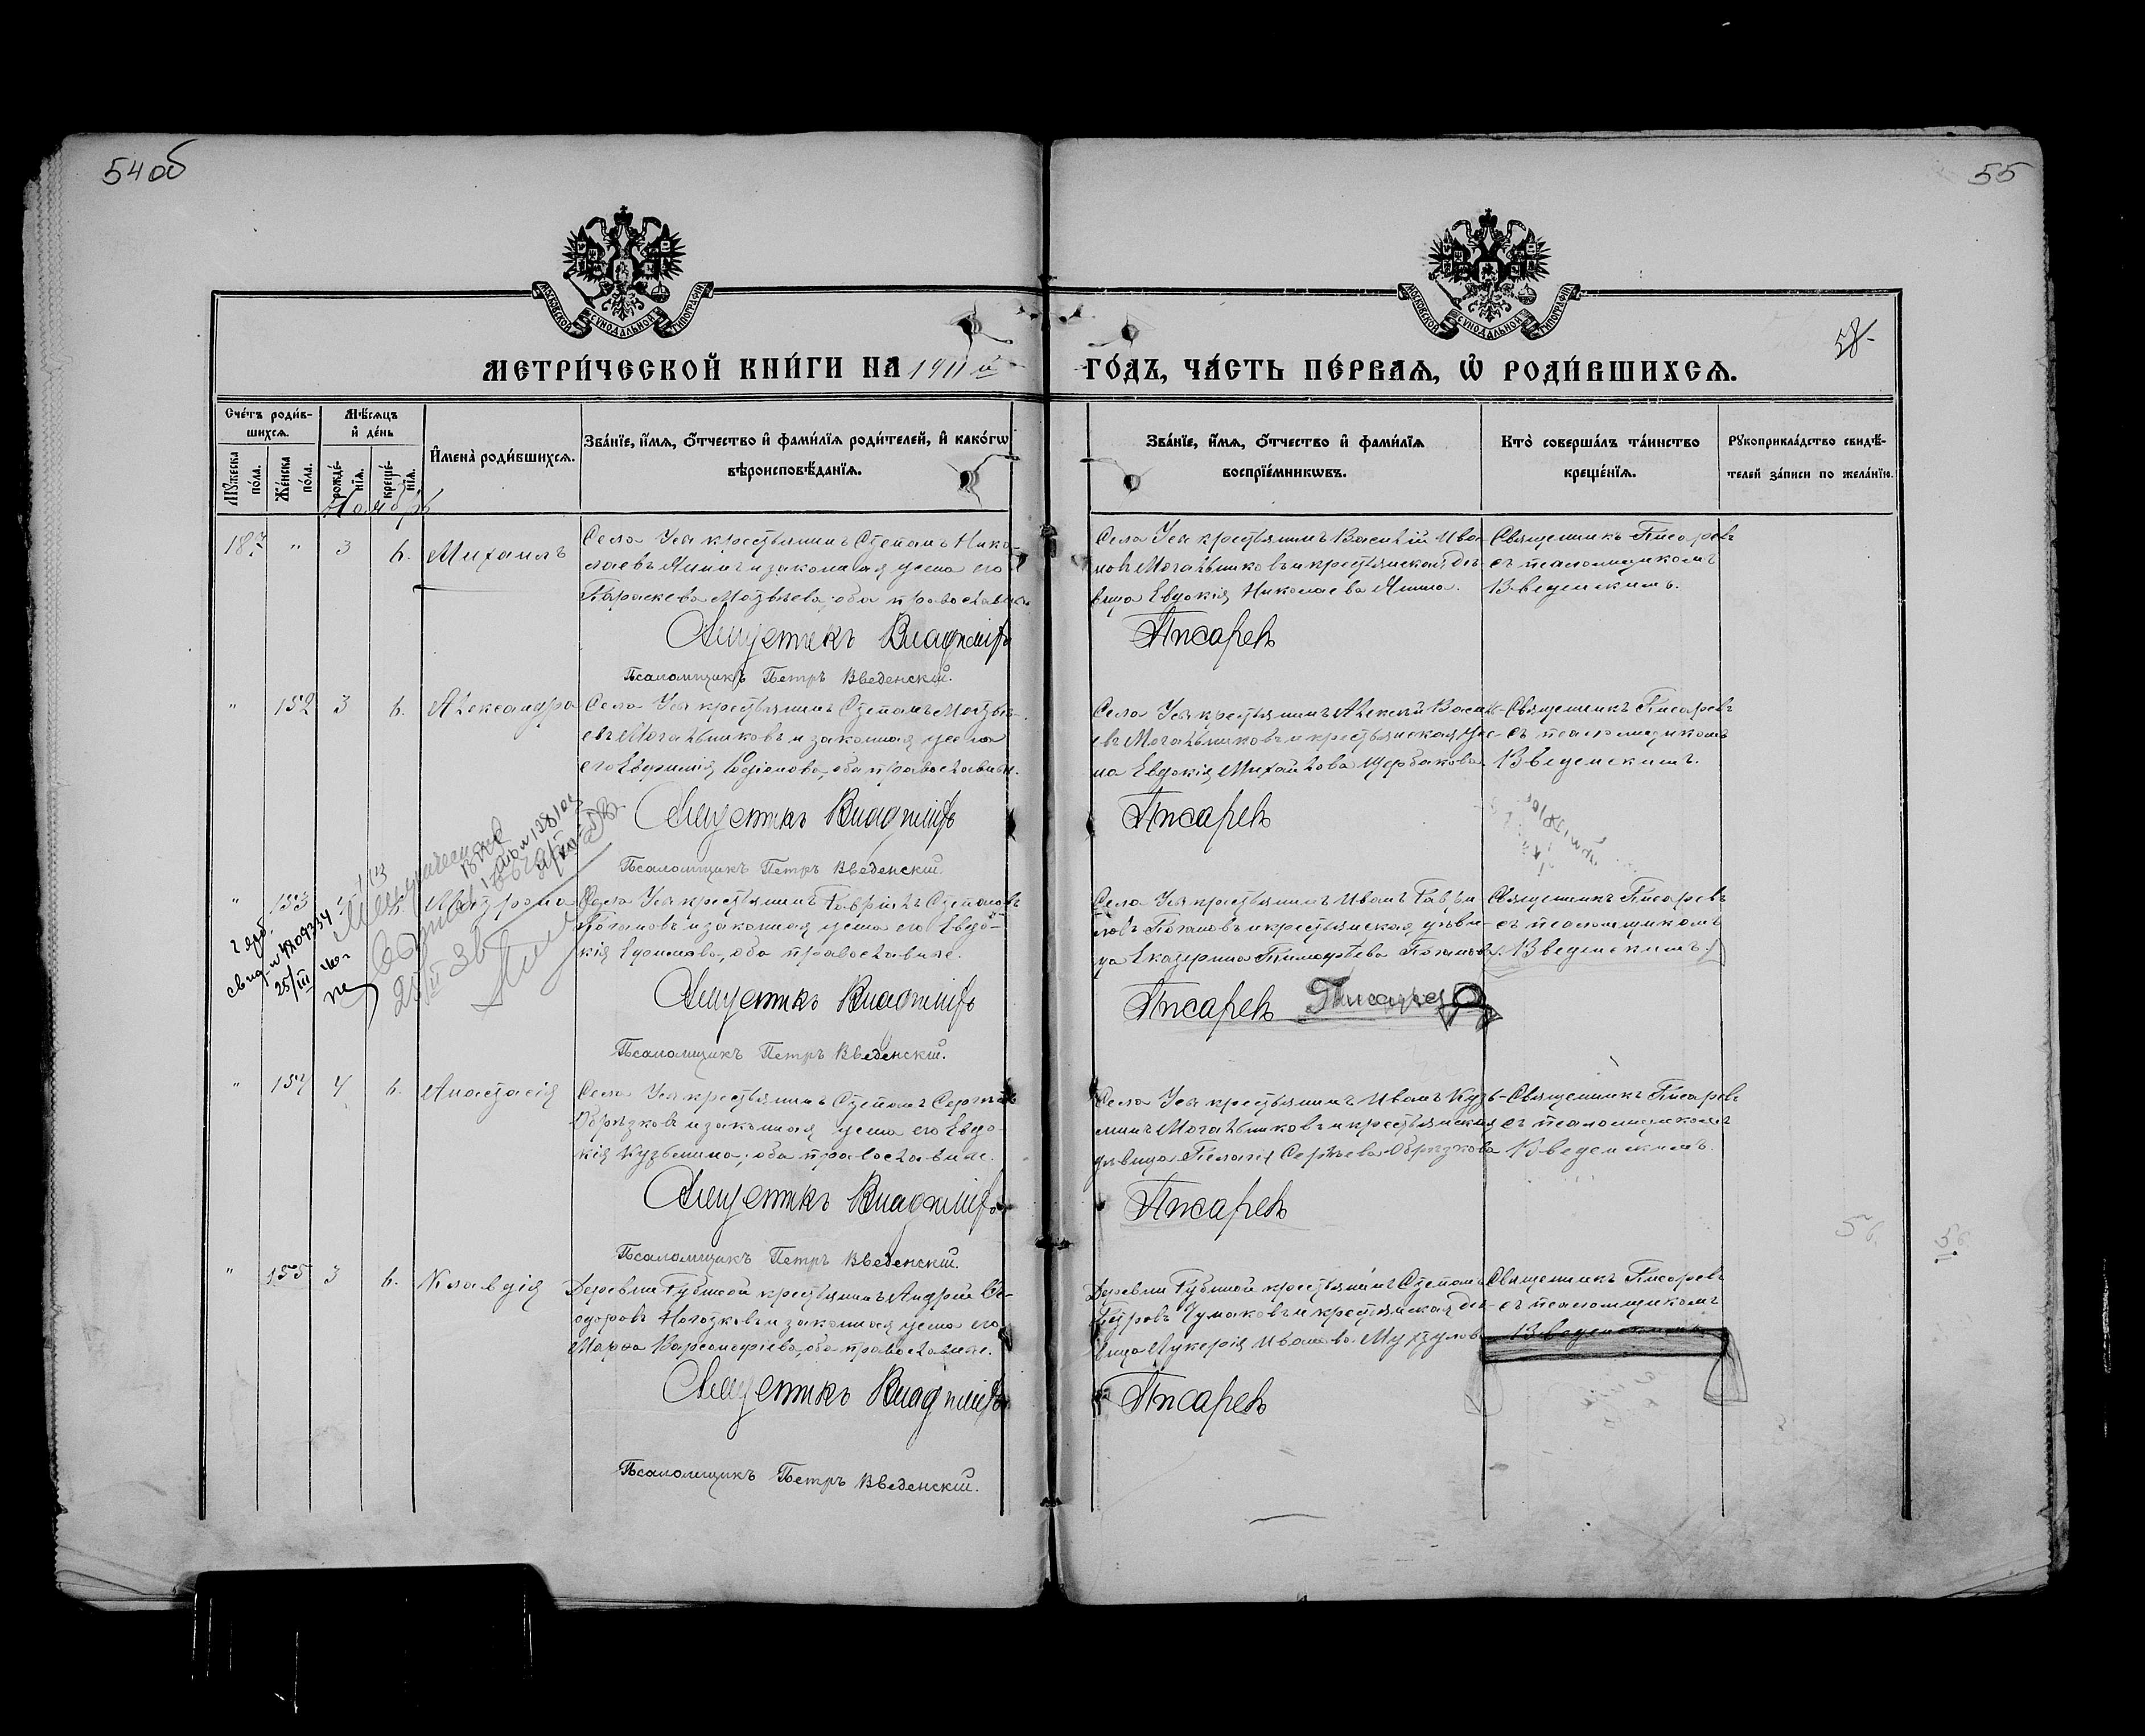 54 об
55
МОСКОВСКОЙ СУНОДАЛЬНОЙ ТИПОГРАФІИ
МОСКОВСКОЙ СУНОДАЛЬНОЙ ТИПОГРАФІИ
58
МЕТРИ́ЧЕСКОЙ КНИ́ГИ НА 1911 й
ГО́ДЪ, ЧА́СТЬ ПЕ́РВАЯ, Ѡ РОДИ́ВШИХСЯ.
Сче́тъ роди́в-
шихся.
Мѣ́сяцъ
и́ де́нь
Мꙋ́жеска по́ла.
Же́нска по́ла.
рожде́-
нїя.
креще́-
нїя.
И҆мена̀ роди́вшихся.
Зва́нїе, и҆́мя, о҆́тчество и҆ фами́лїя роди́телей, и҆ како́гѡ
вѣроисповѣ́данїя.
Зва́нїе, и҆́мя, о҆́тчество и҆ фами́лїя
воспрїе́мникѡвъ.
Кто̀ соверша́лъ та́инство
креще́нїя.
Рꙋкоприкла́дство свидѣ́-
телей за́писи по жела́нїю.
Ноябрь
" 3 6. Михаилъ
Села Усы крестьянинъ Степанъ Нико-
лаевъ Янинъ и законная жена его
Параскева Матвѣева; оба православн.
Священникъ Владиміръ
Псаломщикъ Петръ Введенскій.
Села Усы крестьянинъ Василій Ива-
новъ Могильниковъ и крестьянская дѣ-
вица Евдокія Николаева Янина.
Писаревъ
Священникъ Писаревъ
съ псаломщикомъ
Введенскимъ.
" 152 3 6. Александра
Села Усы крестьянинъ Степанъ Матвѣ-
евъ Могильниковъ и законная жена
его Евфимія Родіонова, оба православн.
Священникъ Владиміръ
Псаломщикъ Петръ Введенскій.
Села Усы крестьянинъ Алексѣй Васил-
евъ Могильниковъ и крестьянская же-
на Евдокія Михайлова Щербакова.
Писаревъ
Священникъ Писаревъ
съ псаломщикомъ
Введенскимъ.
" 153 Матрона
Села Усы крестьянинъ Гавріилъ Степановъ
Потаповъ и законная жена его Евдо-
кія Ефимова, оба православные.
Священникъ Владиміръ
Псаломщикъ Петръ Введенскій.
Села Усы крестьянинъ Иванъ Гаврі-
ловъ Потаповъ и крестьянская дѣви-
ца Екатерина Тимофѣева Потапова.
Писаревъ
Священникъ Писаревъ
съ псаломщикомъ
Введенскимъ.
25/III
" 154 4 6. Анастасія
Села Усы крестьянинъ Степанъ Сергѣевъ
Образковъ и законная жена его Евдо-
кія Кузьмина; оба православные.
Священникъ Владиміръ
Псаломщикъ Петръ Введенскій.
Села Усы крестьянинъ Иванъ Кузь-
минъ Могильниковъ и крестьянская
дѣвица Пелагія Сергѣева Образкова
Писаревъ
Священникъ Писаревъ
съ псаломщикомъ
Введенскимъ.
" 155 3 6. Клавдія
Деревни Губиной крестьянинъ Андрей Ѳе-
одоровъ и законная жена его
Марѳа Варсонофіева, оба православные.
Священникъ Владиміръ
Псаломщикъ Петръ Введенскій.
Деревни Губиной крестьянинъ Степанъ
Петровъ Чумаковъ и крестьянская дѣ-
вица Лукерія Иванова
Писаревъ
Священникъ Писаревъ
съ псаломщикомъ
Введенскимъ
56